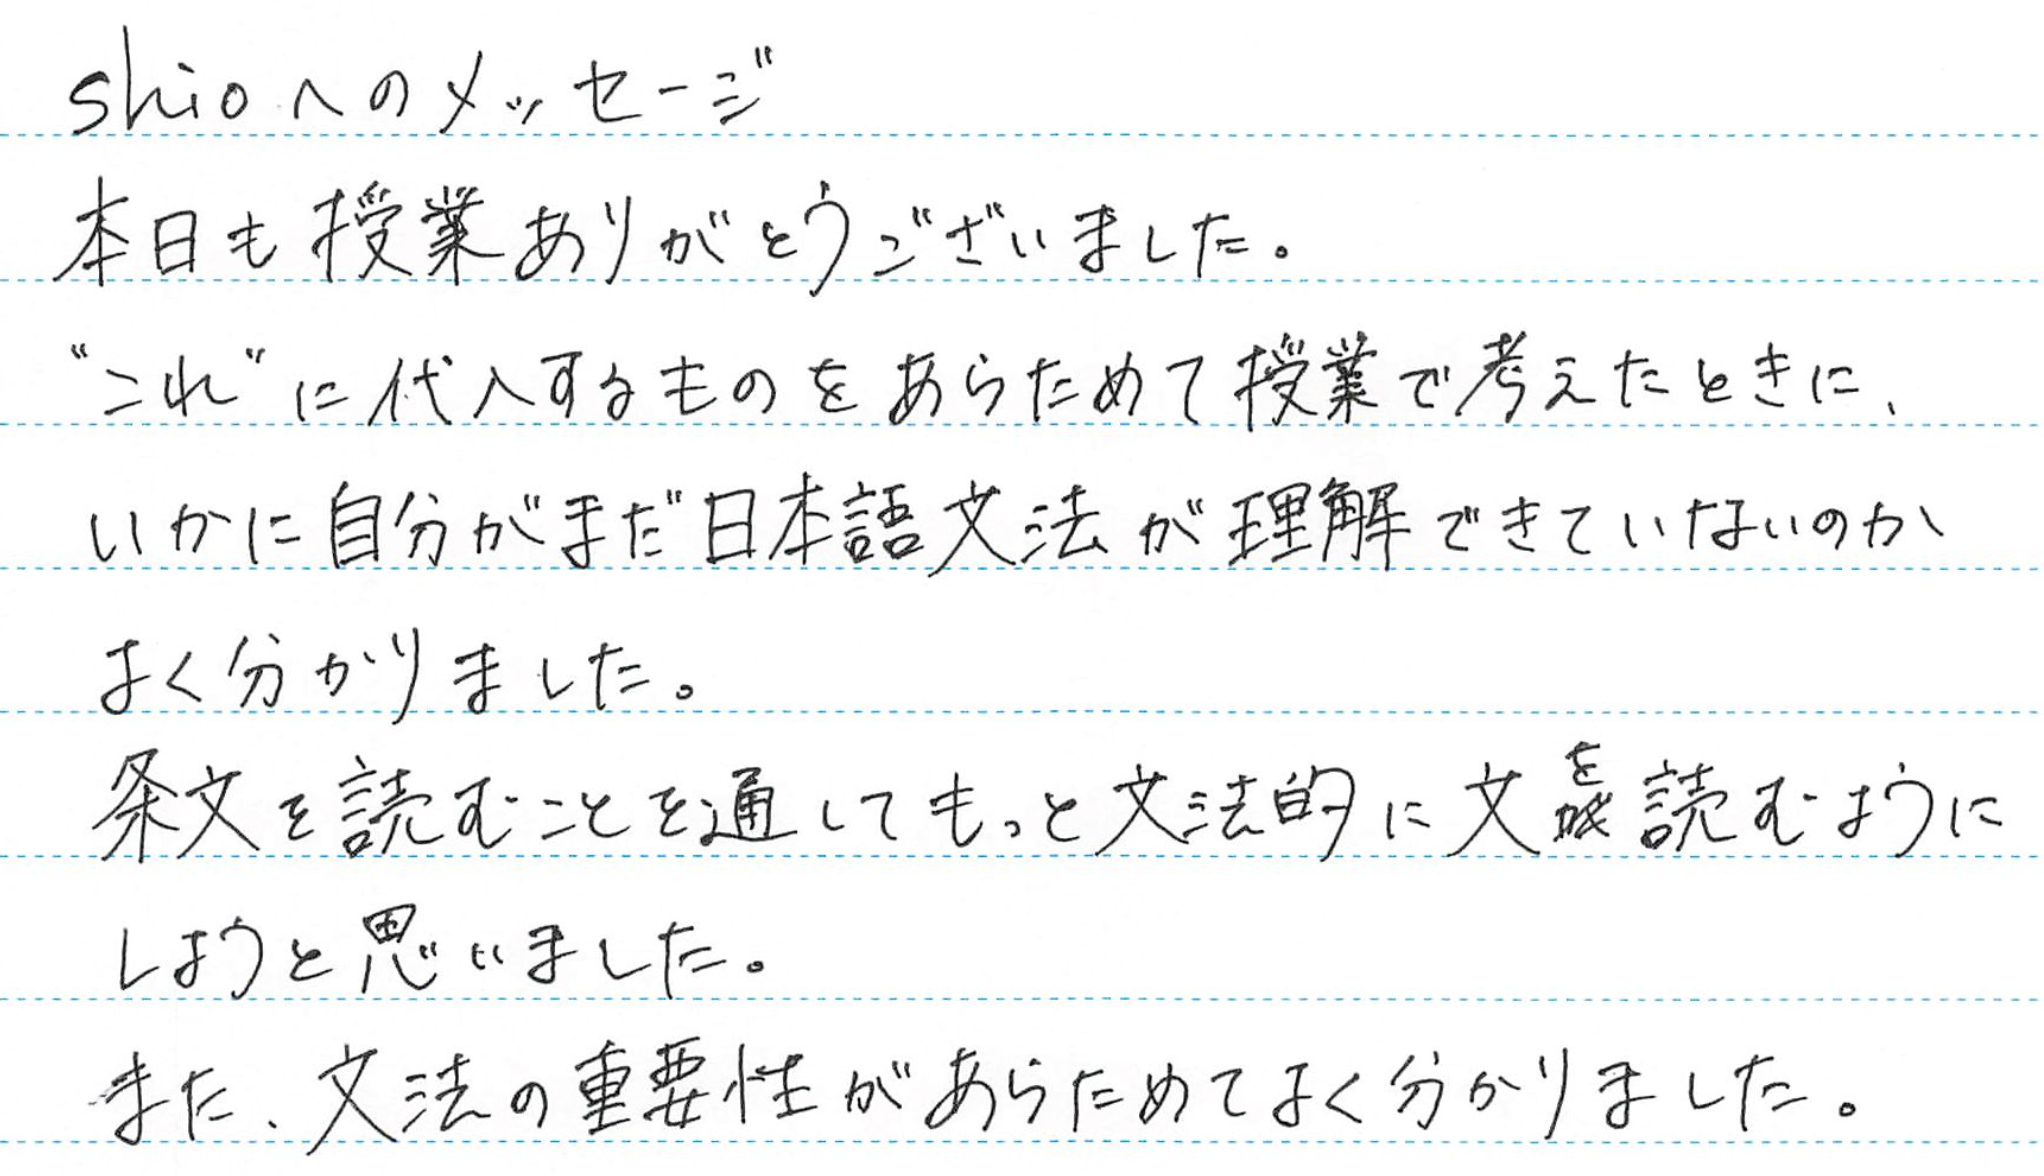 shioへのメッセージ
本日も授業ありがとうございました。
"これ"に代入するものをあらためて授業で考えたときに、
いかに自分がまだ日本語文法が理解できていないのか
よく分かりました。
条文を読むことを通してもっと文法的に文を読むように
しようと思いました。
また、文法の重要性があらためてよく分かりました。